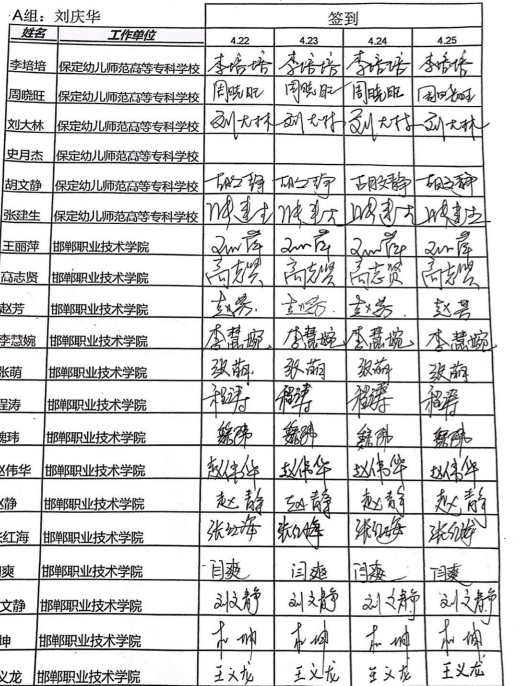 A组：刘庆华 签到
姓名 工作单位 4.22 4.23 4.24 4.25
李培培 保定幼儿师范高等专科学校 李培培 李培培 李培培 李培培
周晓旺 保定幼儿师范高等专科学校 周晓旺 周晓旺 周晓旺 周晓旺
刘大林 保定幼儿师范高等专科学校 刘大林 刘大林 刘大林 刘大林
史月杰 保定幼儿师范高等专科学校
胡文静 保定幼儿师范高等专科学校 胡文静 胡文静 胡文静 胡文静
张建生 保定幼儿师范高等专科学校 张建生 张建生 张建生 张建生
王丽萍 邯郸职业技术学院 王丽萍 王丽萍 王丽萍 王丽萍
高志贤 邯郸职业技术学院 高志贤 高志贤 高志贤 高志贤
赵芳 邯郸职业技术学院 赵芳 赵芳 赵芳 赵芳
李慧婉 邯郸职业技术学院 李慧婉 李慧婉 李慧婉 李慧婉
张萌 邯郸职业技术学院 张萌 张萌 张萌 张萌
程涛 邯郸职业技术学院 程涛 程涛 程涛 程涛
魏玮 邯郸职业技术学院 魏玮 魏玮 魏玮 魏玮
赵伟华 邯郸职业技术学院 赵伟华 赵伟华 赵伟华 赵伟华
赵静 邯郸职业技术学院 赵静 赵静 赵静 赵静
张红海 邯郸职业技术学院 张红海 张红海 张红海 张红海
闫爽 邯郸职业技术学院 闫爽 闫爽 闫爽 闫爽
文静 邯郸职业技术学院 刘文静 刘文静 刘文静 刘文静
坤 邯郸职业技术学院 坤 坤 坤 坤
义龙 邯郸职业技术学院 王义龙 王义龙 王义龙 王义龙